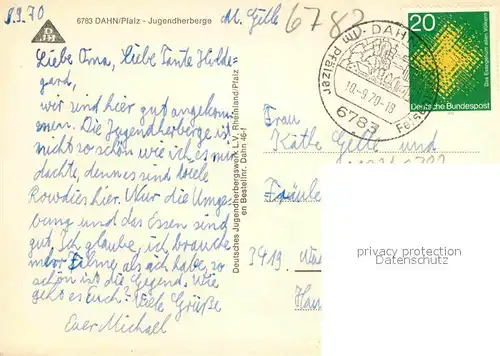 8.9.70
DJH
6783 DAHN/Pfalz - Jugendherberge
M. Gelle
6782
Liebe Oma, Liebe Tante Hilde-
gard,
wir sind hier gut angekom-
men. Die Jugendherberge ist
nicht so schön wie ich es mir
dachte, denn es sind viele
Rowdies hier. Nur die Umge-
bung und das Essen sind
gut. Ich glaube, ich brauche
mehr Filme, als ich habe, so
schön ist die Gegend. Wie
geht es Euch? Viele Grüße
Euer Michael
Deutsches Jugendherbergswerk L.V. Rheinland/Pfalz
Bestellnr. Dahn 46-f
DAHN
im Pfälzer
10.-9.70-18
6783
20
Das Evangelium allen Völkern
Deutsche Bundespost
Frau
Käthe Gelle und
Fräule
3419
privacy protection
Datenschutz